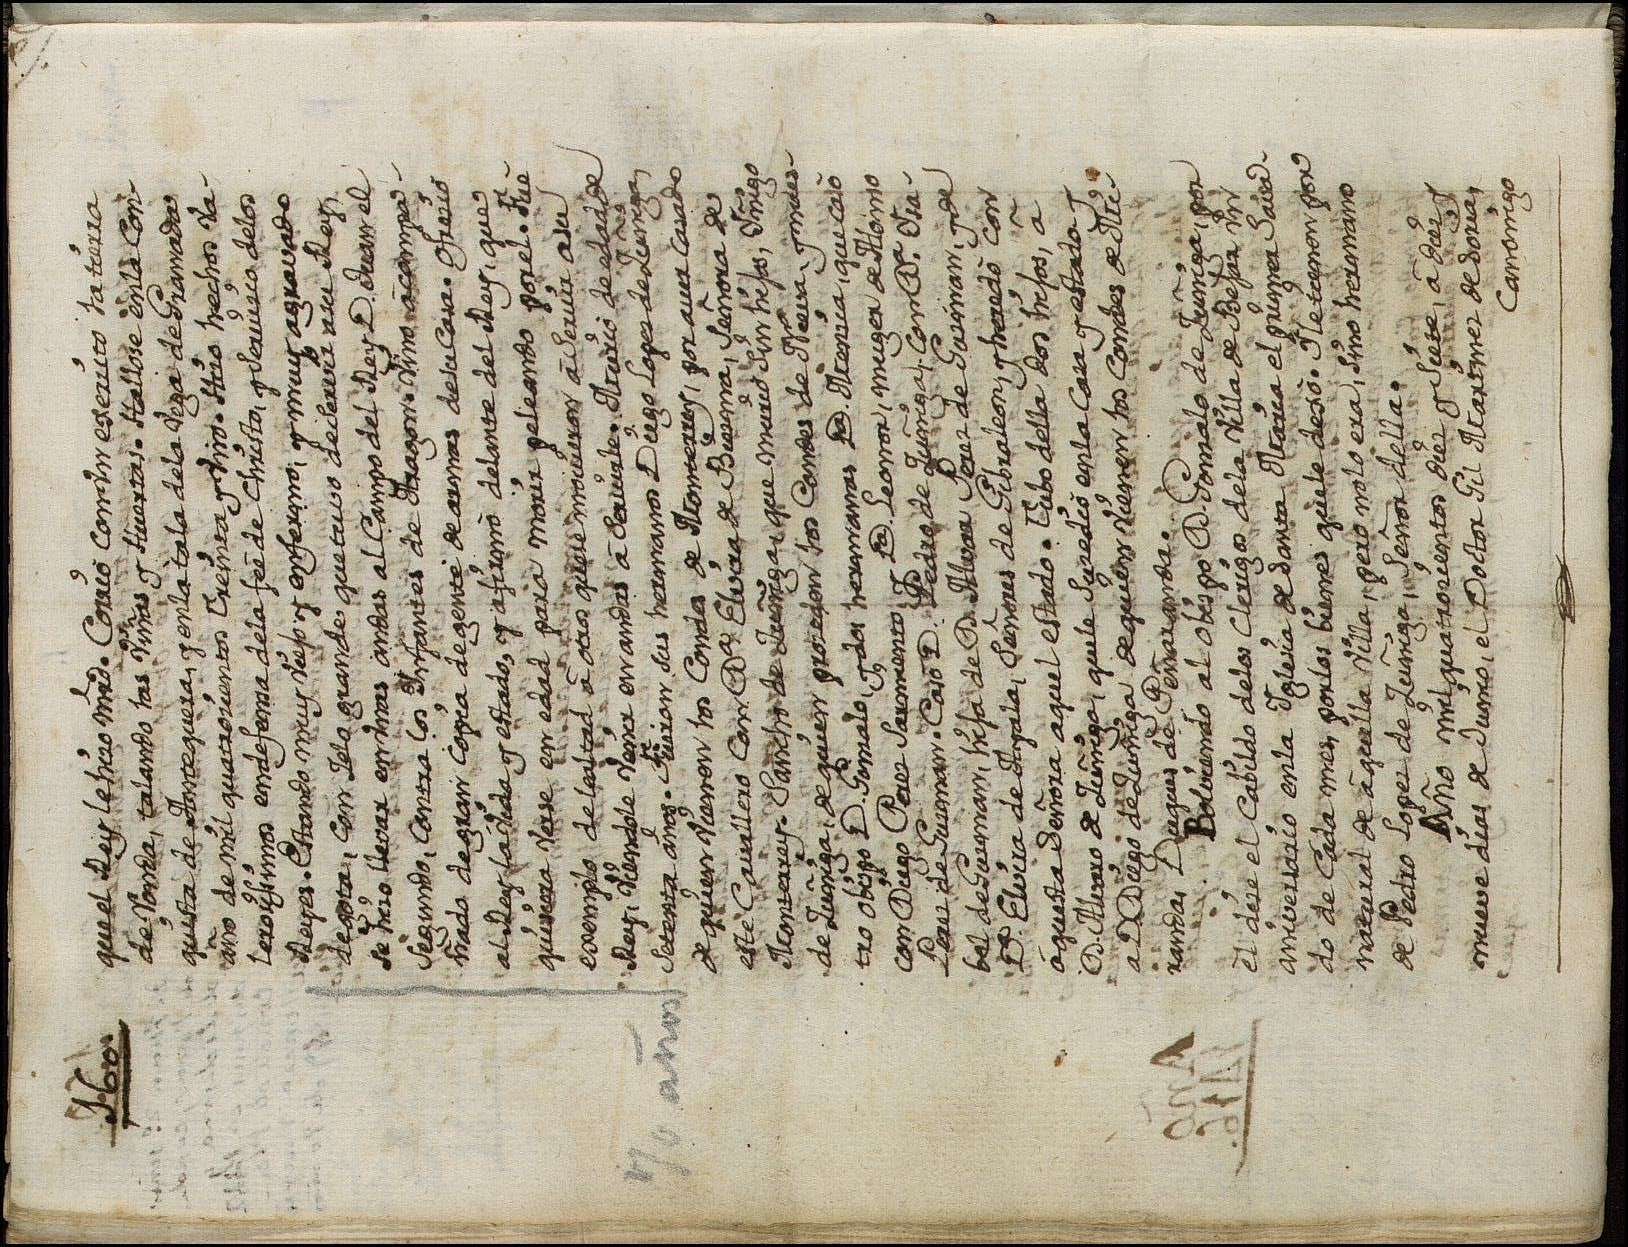 160.
que el Rey le hizo mrd. Corrio con su exercito la tierra
de Ronda, talando las Viñas y Huertas. Hallose en la Con-
quista de Antequera, y en la tala de la Vega de Granada
año de mil quatrocientos treinta y uno. Hizo hechos Va-
lerosisimos en defensa de la feê de Christo, y servicio de los
Reyes. Estando muy viejo y enfermo, y muy agravado
de gota, Con Zelo grande que tuvo de servir a su Rey,
se hizo llevar en unas andas al Campo del Rey D. Juan el
Segundo, Contra los Infantes de Aragon. Vino acompa-
ñado de gran Copia de gente de armas de su Casa. Ofreció
al Rey la vida y estado, y afirmó delante del Rey, que
quisiera verse en edad para morir peleando por el. Fuè
exemplo de lealtad â otros que se movieron â Servir a su
Rey, viendole venir en andas â Servirle. Murió de edad de
Setenta años. Fueron sus hermanos Diego Lopez de Zuñiga,
de quien vienen los Condes de Monterrey, por aver Casado
este Cavallero Con Dª Elvira de Biezma, Señora de
Monterrey. Sancho de Zuñiga, que murió sin hijos, Iñigo
de Zuñiga, de quien proceden los Condes de Nieva, y nues-
tro obispo D. Gonzalo, y dos hermanas D. Mencia, que casò
con Diego Perez Sarmiento, y D. Leonor, muger de Alonso
Perez de Guzman. Casò D. Pedro de Zuñiga, Con Dª Isa-
bel de Guzman, hija de D. Alvar Perez de Guzman, y de
D. Elvira de Ayala, Señores de Gibraleon, y heredò con
aquesta Señora aquel estado. Tubo della dos hijos, a
D. Alvaro de Zuñiga, que le Sucediò en la Casa y estado, y
a D. Diego de Zuñiga de quien vienen los Condes de Mi-
randa, Duques de Peñaranda.
Bolviendo al obispo D. Gonzalo de Zuñiga, por
èl dize el Cabildo de los Clerigos de la Villa de Bejar un
aniversario en la Iglesia de Santa Maria el primer Saba-
do de Cada mes, por los bienes que le dexò. Y le tienen por
natural de aquella Villa, pero no lo era, Sino hermano
de Pedro Lopez de Zuñiga, Señor della.
Año
1416.
Año mil quatrocientos diez y Siete, â diez y
nueve dias de Junio, el Doctor Gil Martinez de Soria,
Canonigo
70 años